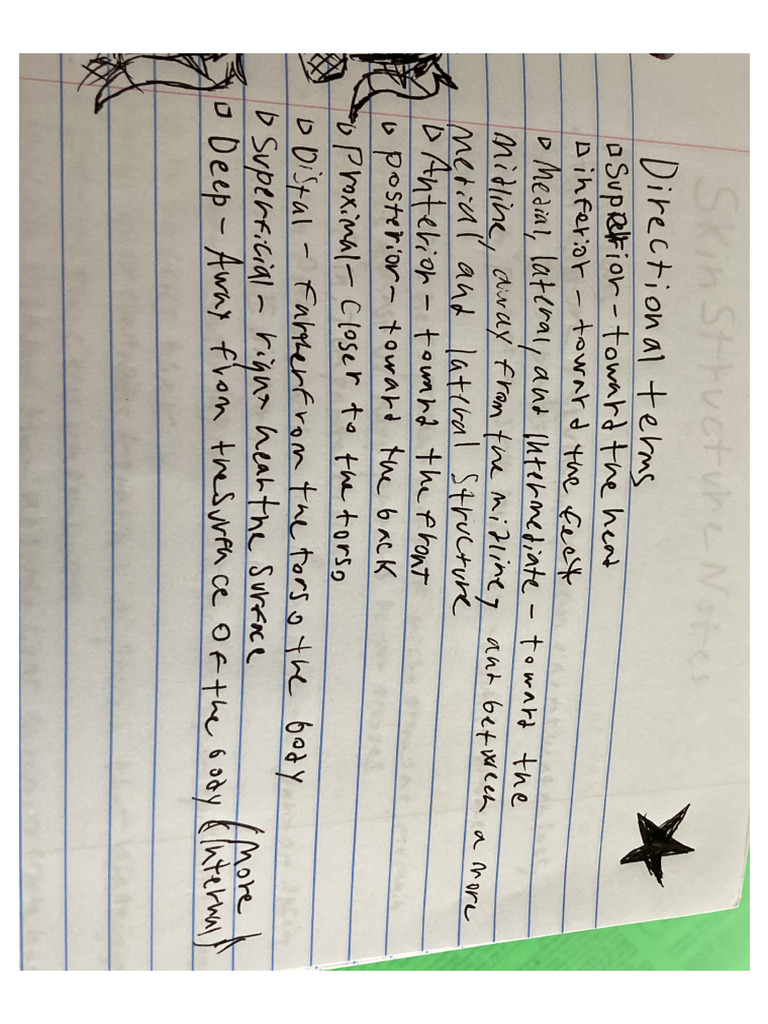 Directional terms
Superior - toward the head
inferior - toward the feet
Medial, lateral, and Intermediate - toward the
Midline, away from the midline, and between a more
Medial and lateral structure
Anterior - toward the front
posterior - toward the back
Proximal - Closer to the torso
Distal - Farther from the torso the body
Superficial - right near the surface
Deep - Away from the surface of the body (More Internal)
Skin Structure Notes